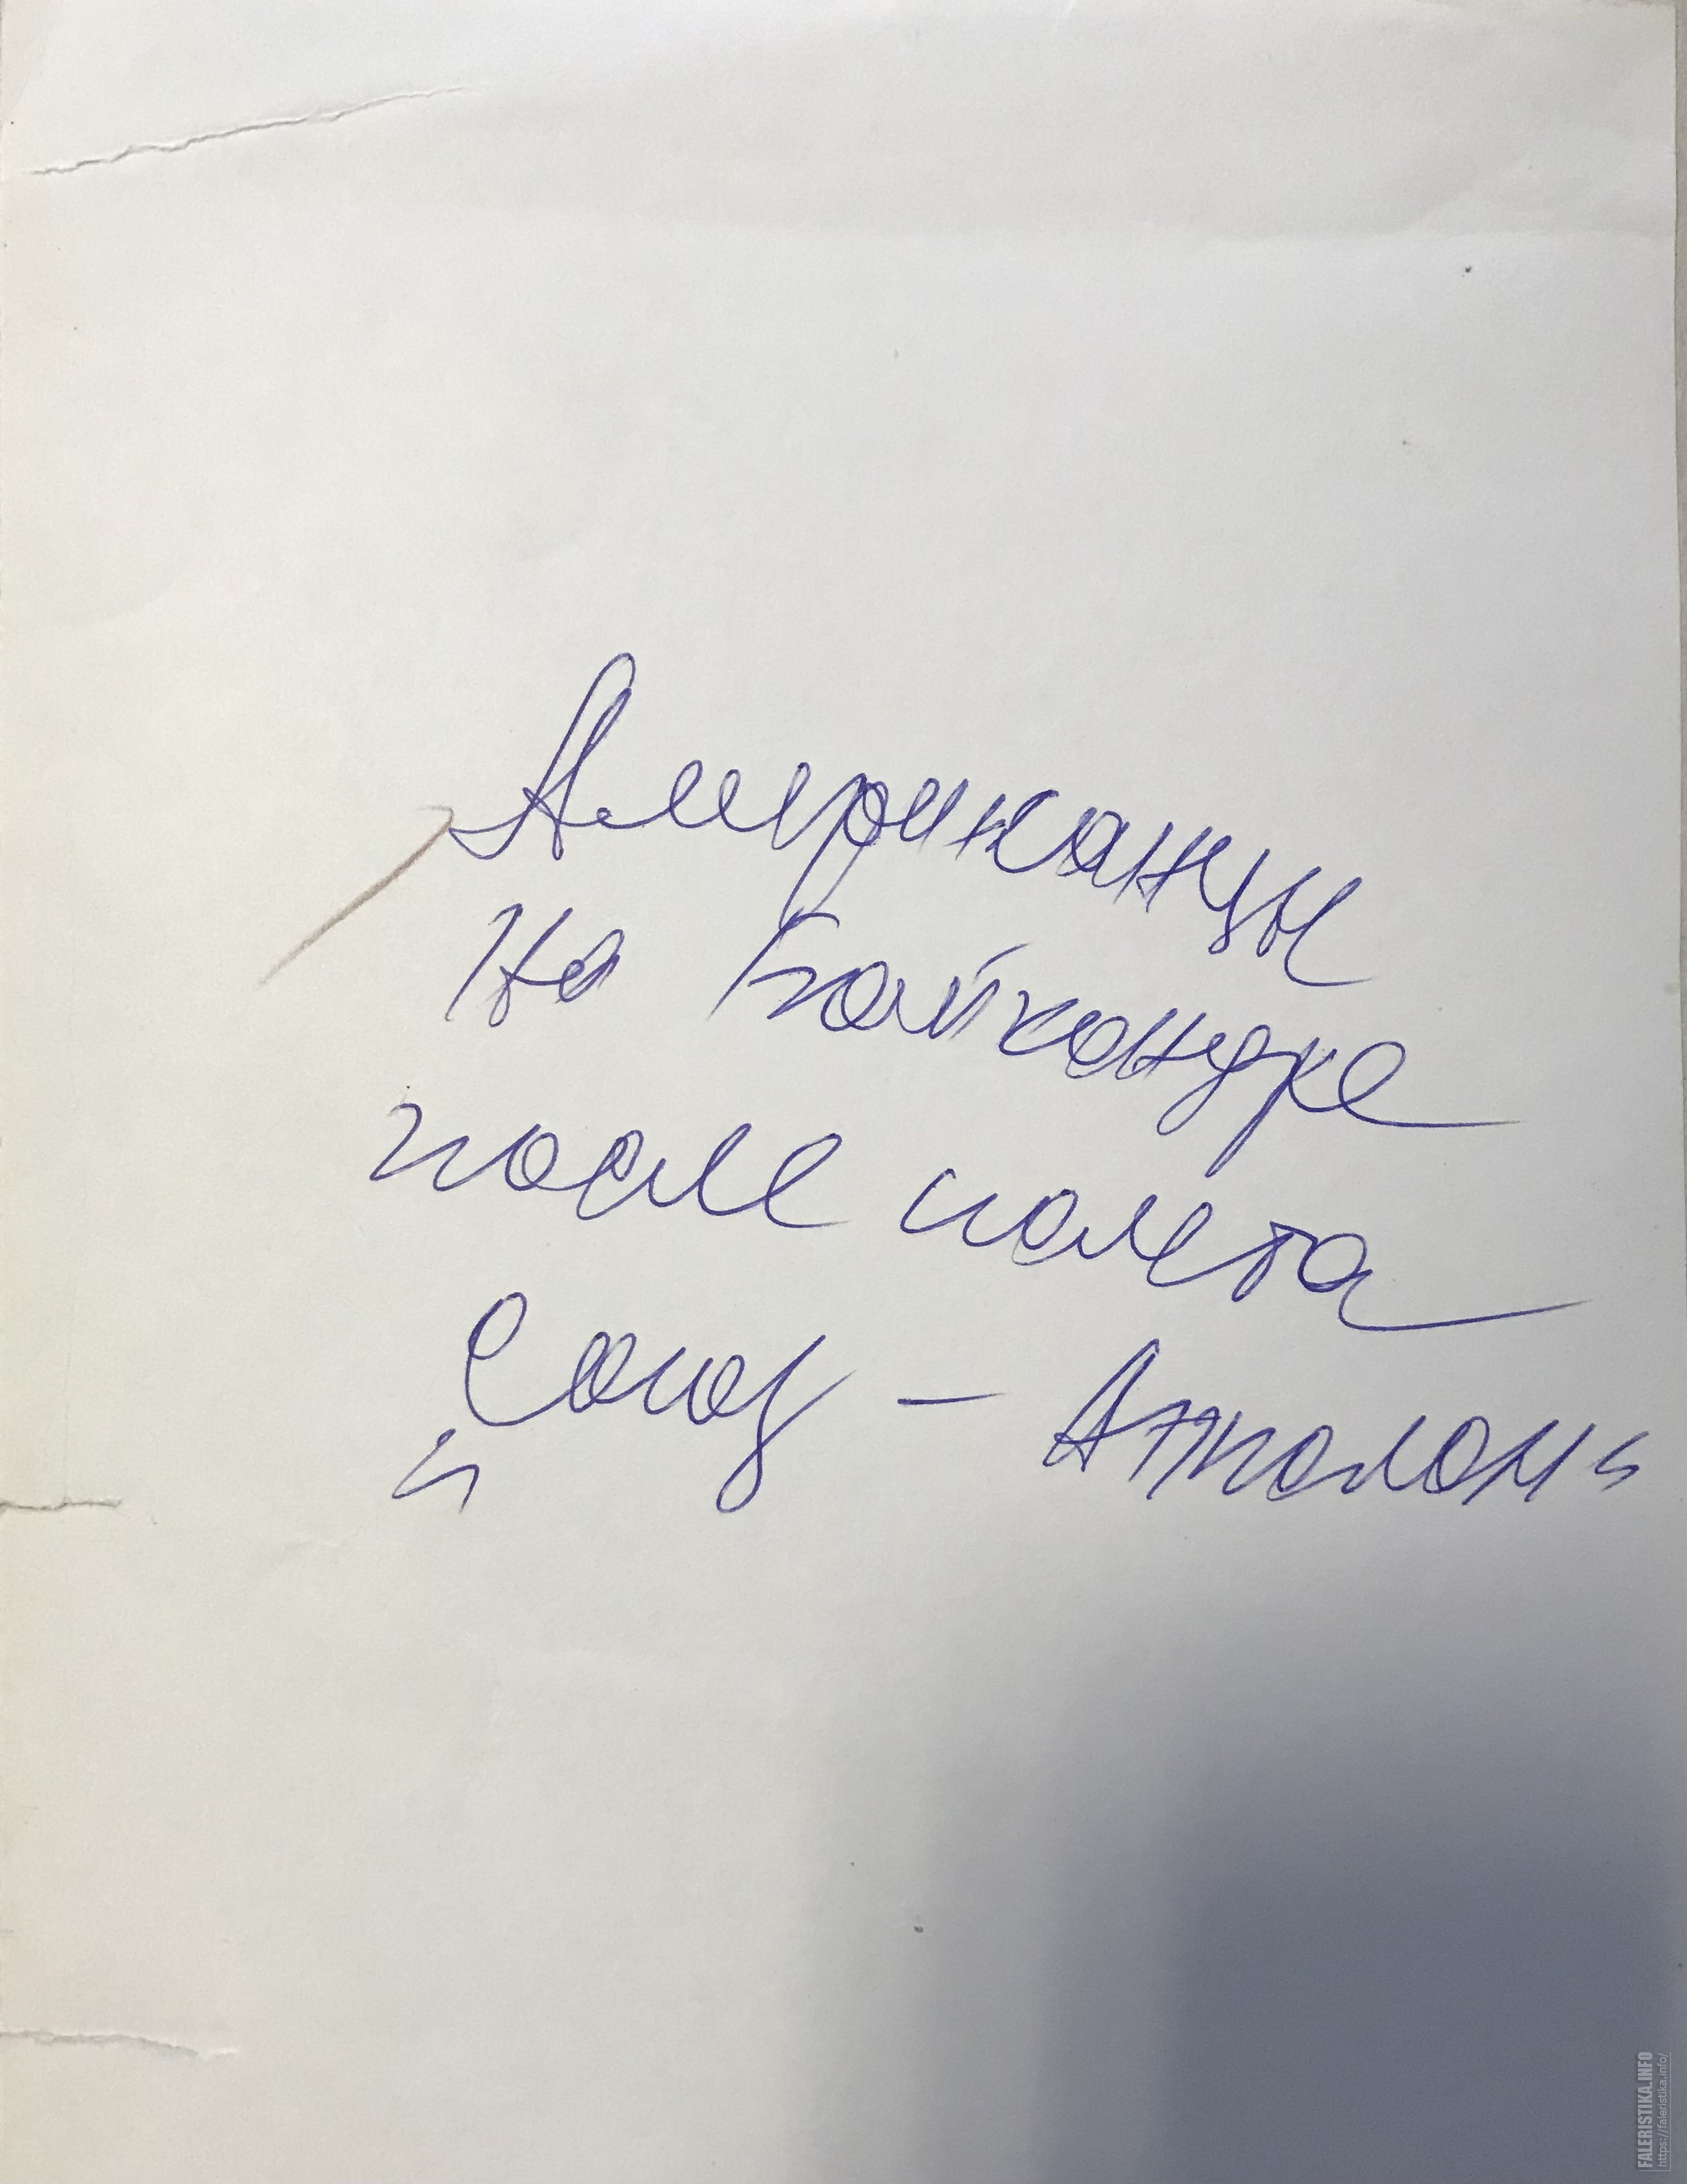 Американцы
на Байконуре
после полета
„Союз – Аполлон“
FALERISTIKA.INFO
https://faleristika.info/